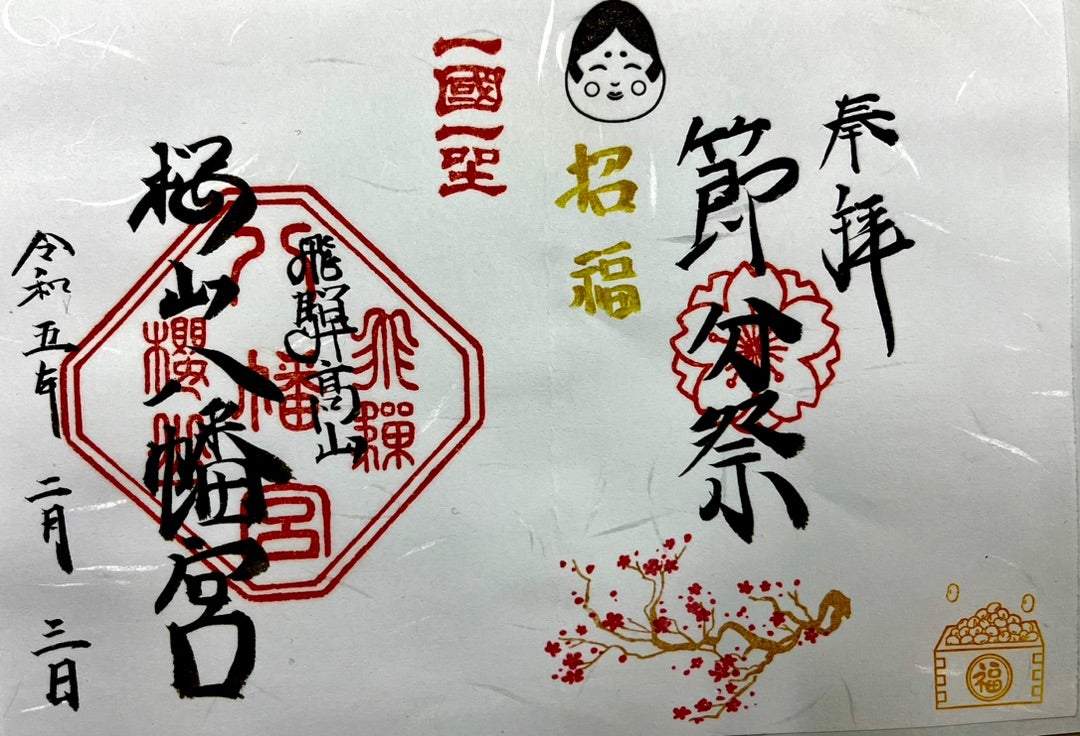 奉拝
節分祭
招福
一國一社
飛騨高山
桜山八幡宮
飛騨
櫻山
八幡宮
令和五年 二月 三日
福